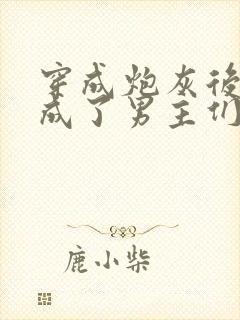 穿成炮灰後
成了男主们
鹿小柴